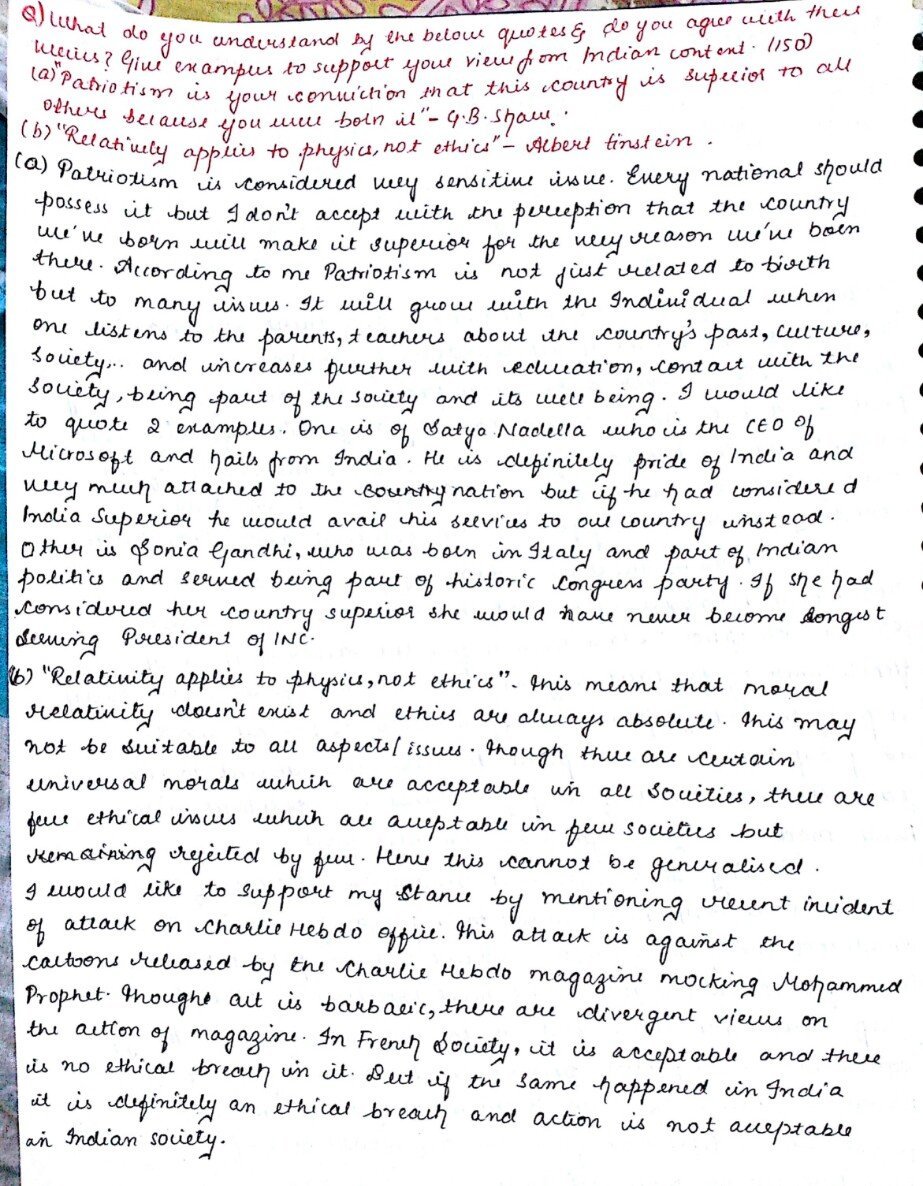 Q) What do you understand by the below quotes & do you agree with these
views? Give examples to support your view from Indian context. (150)
(a) "Patriotism is your conviction that this country is superior to all
others because you were born it" - G.B. Shaw.
(b) "Relatively applies to physics, not ethics" - Albert Einstein.
(a) Patriotism is considered very sensitive issue. Every national should
possess it but I don't accept with the perception that the country
we've born will make it superior for the very reason we've born
there. According to me Patriotism is not just related to birth
but to many issues. It will grow with the Individual when
one listens to the parents, teachers about the country's past, culture,
society... and increases further with education, contact with the
society, being part of the society and its well being. I would like
to quote 2 examples. One is of Satya Nadella who is the CEO of
Microsoft and hails from India. He is definitely pride of India and
very much attached to the country nation but if he had considered
India Superior he would avail his services to our country instead.
Other is Sonia Gandhi, who was born in Italy and part of Indian
politics and served being part of historic Congress party. If she had
considered her country superior she would have never become longest
serving President of INC.
(b) "Relativity applies to physics, not ethics". This means that moral
relativity doesn't exist and ethics are always absolute. This may
not be suitable to all aspects/issues. Though there are certain
universal morals which are acceptable in all Societies, there are
few ethical issues which are acceptable in few societies but
remaining rejected by few. Hence this cannot be generalised.
I would like to support my stance by mentioning recent incident
of attack on Charlie Hebdo office. This attack is against the
cartoons released by the Charlie Hebdo magazine mocking Mohammed
Prophet. Thought act is barbaric, there are divergent views on
the action of magazine. In French Society, it is acceptable and there
is no ethical breach in it. But if the same happened in India
it is definitely an ethical breach and action is not acceptable
in Indian society.